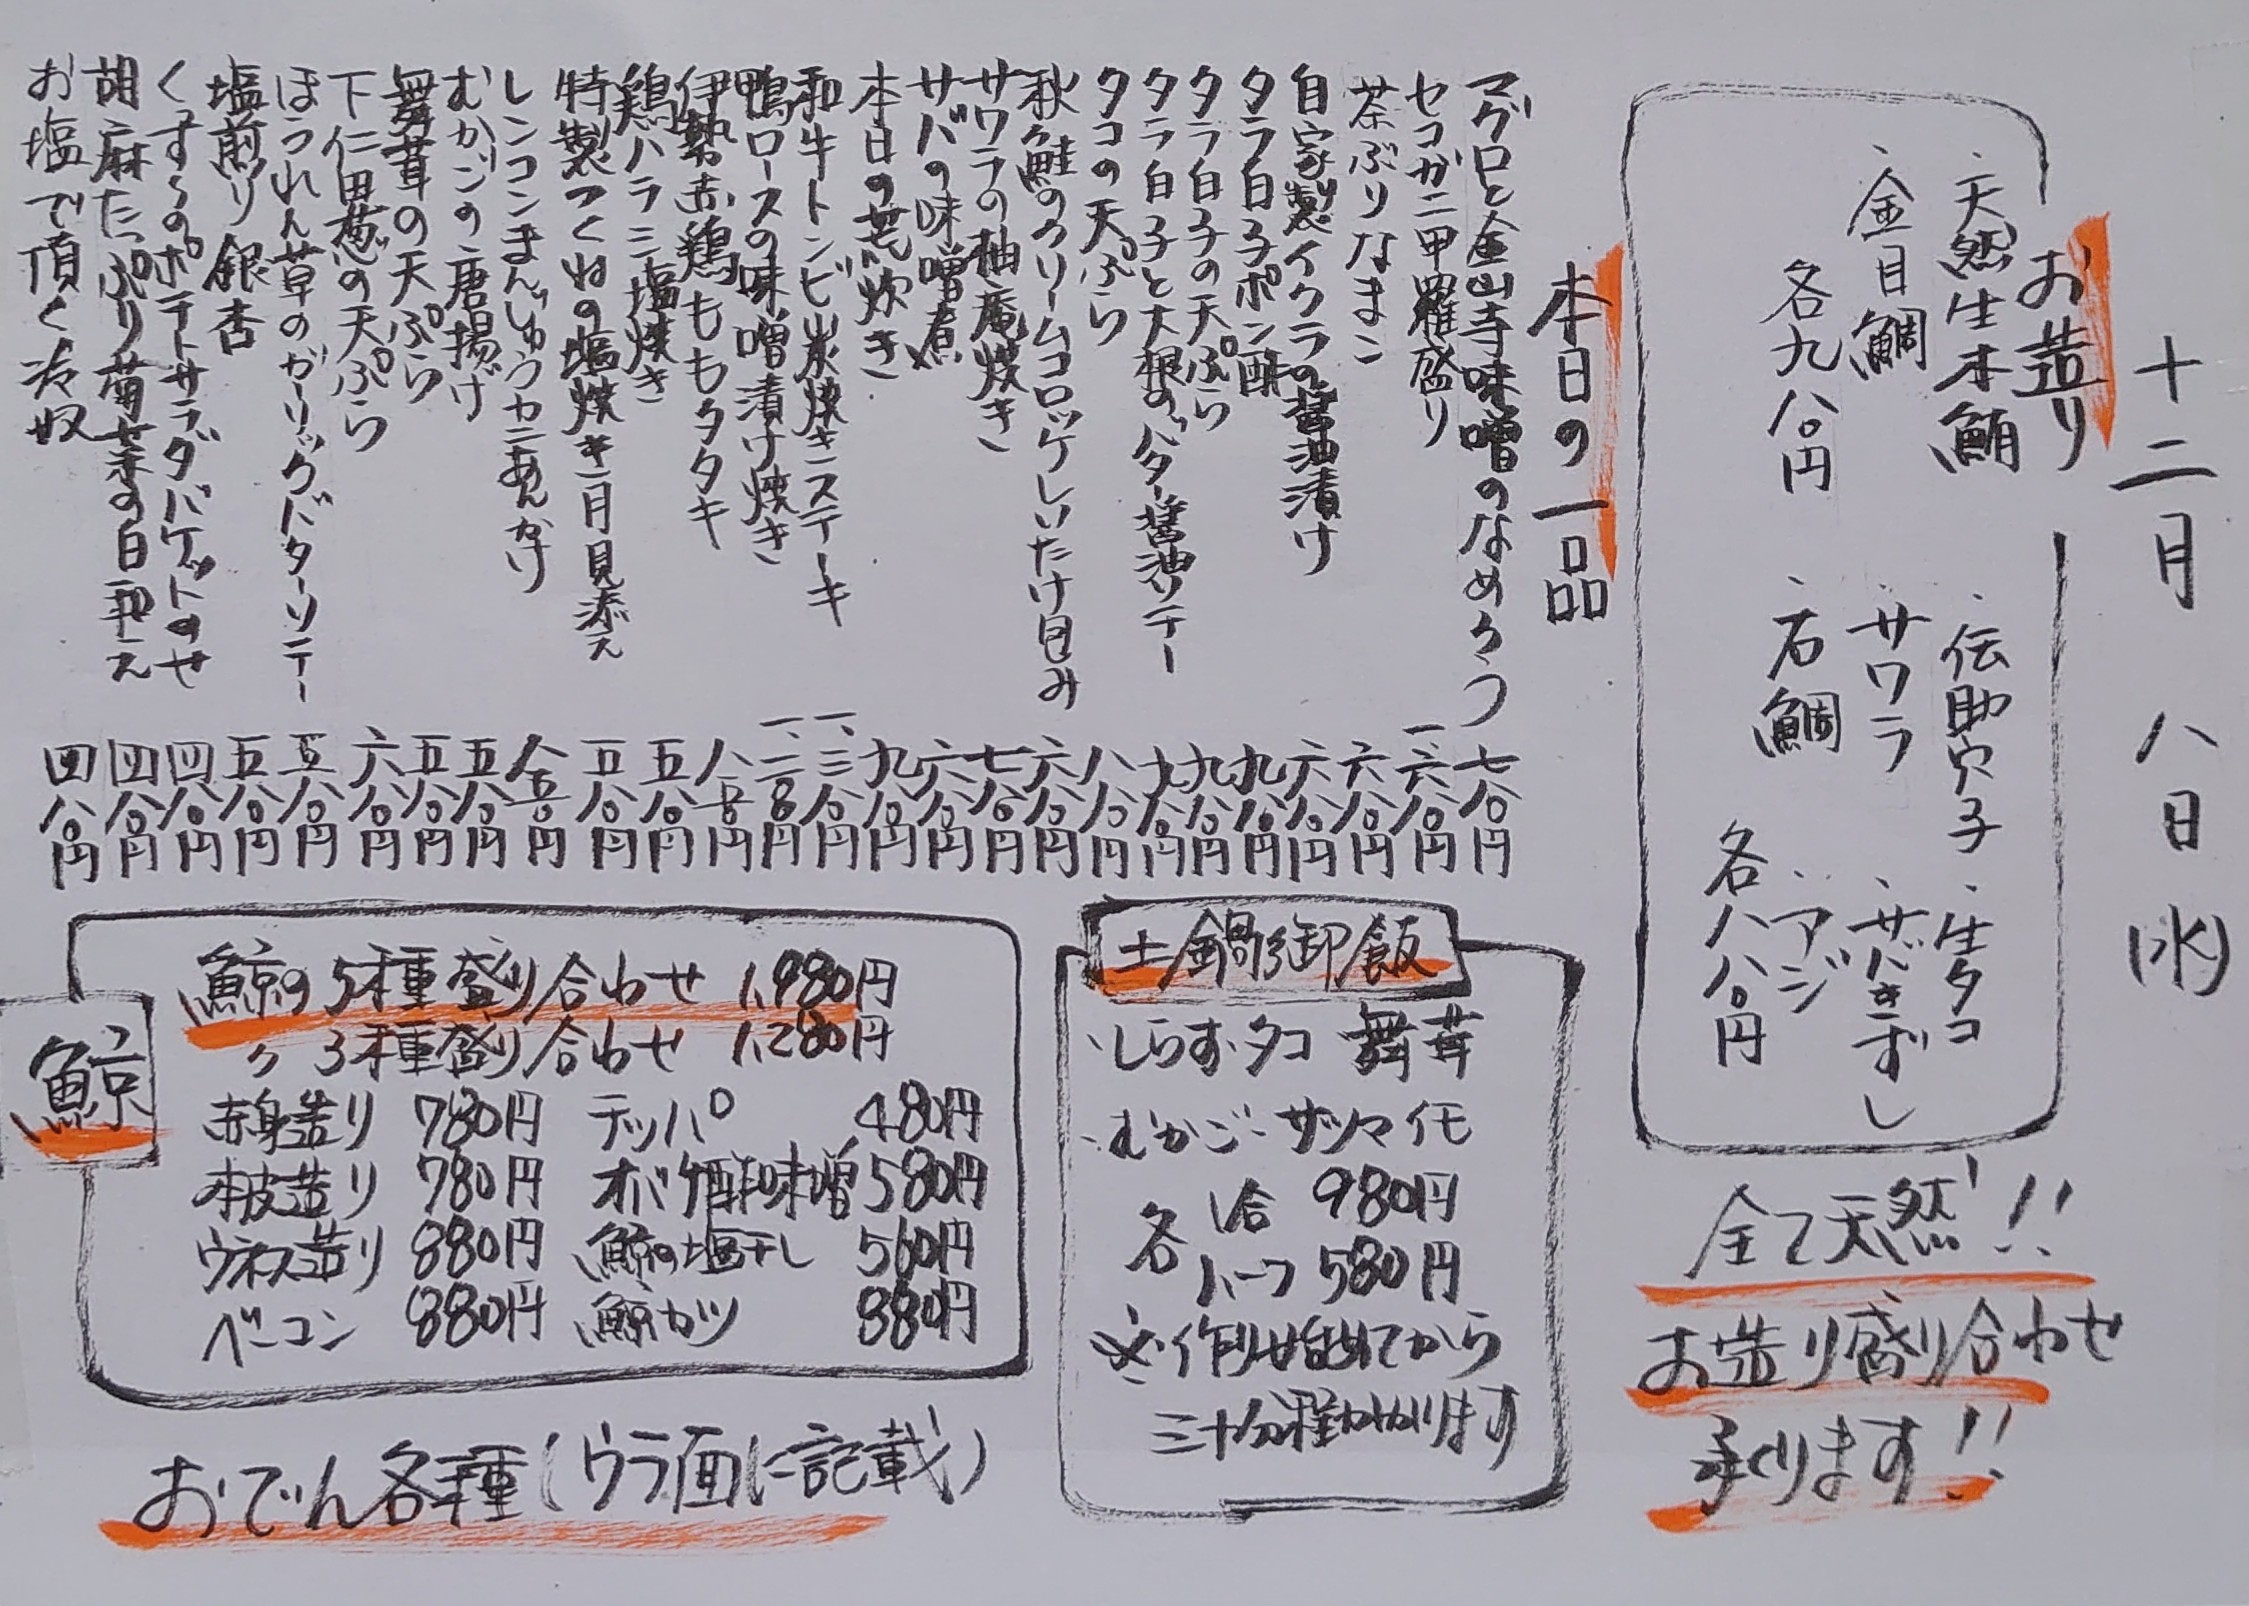 十二月 八日 (水)
お造り
・天然生本鮪 ・伝助穴子 ・生タコ
・金目鯛 ・サワラ ・サバきずし
各九八〇円 ・石鯛 ・アジ
各八八〇円
全て天然!!
お造り盛り合わせ
承ります!!
本日の一品
マグロと金山寺味噌のなめろう 七八〇円
セコガニ甲羅盛り 一、六八〇円
茶ぶりなまこ 六八〇円
自家製イクラの醤油漬け 六八〇円
タラ白子ポン酢 九八〇円
タラ白子の天ぷら 九八〇円
タラ白子と大根のバター醤油ソテー 九八〇円
タコの天ぷら 八八〇円
秋鮭のクリームコロッケしいたけ包み 六八〇円
サワラの柚庵焼き 七八〇円
サバの味噌煮 六八〇円
本日の荒炊き 九八〇円
和牛トンビ炭焼きステーキ 一、三八〇円
鴨ロースの味噌漬け焼き 一、二八〇円
伊勢赤鶏ももタタキ 八五〇円
鶏ハラミ塩焼き 五八〇円
特製つくねの塩焼き 月見添え 五八〇円
レンコンまんじゅうカニあんかけ 八五〇円
むかごの唐揚げ 五八〇円
舞茸の天ぷら 五八〇円
下仁田葱の天ぷら 六八〇円
ほうれん草のガーリックバターソテー 五八〇円
塩煎り銀杏 五八〇円
くずしのポテトサラダバケットのせ 四八〇円
胡麻たっぷり菊菜の白和え 四八〇円
お塩で頂く冷奴 四八〇円
土鍋御飯
・しらす・タコ 舞茸
・むかご・サツマイモ
各 1合 980円
ハーフ 580円
※作り始めてから
三十分程かかります
鯨
鯨の5種盛り合わせ 1,980円
〃 3種盛り合わせ 1,280円
赤身造り 780円 テッパ 480円
本皮造り 780円 オバケ酢味噌 580円
ウネス造り 880円 鯨の塩干し 560円
ベーコン 880円 鯨カツ 880円
おでん各種(ウラ面に記載)